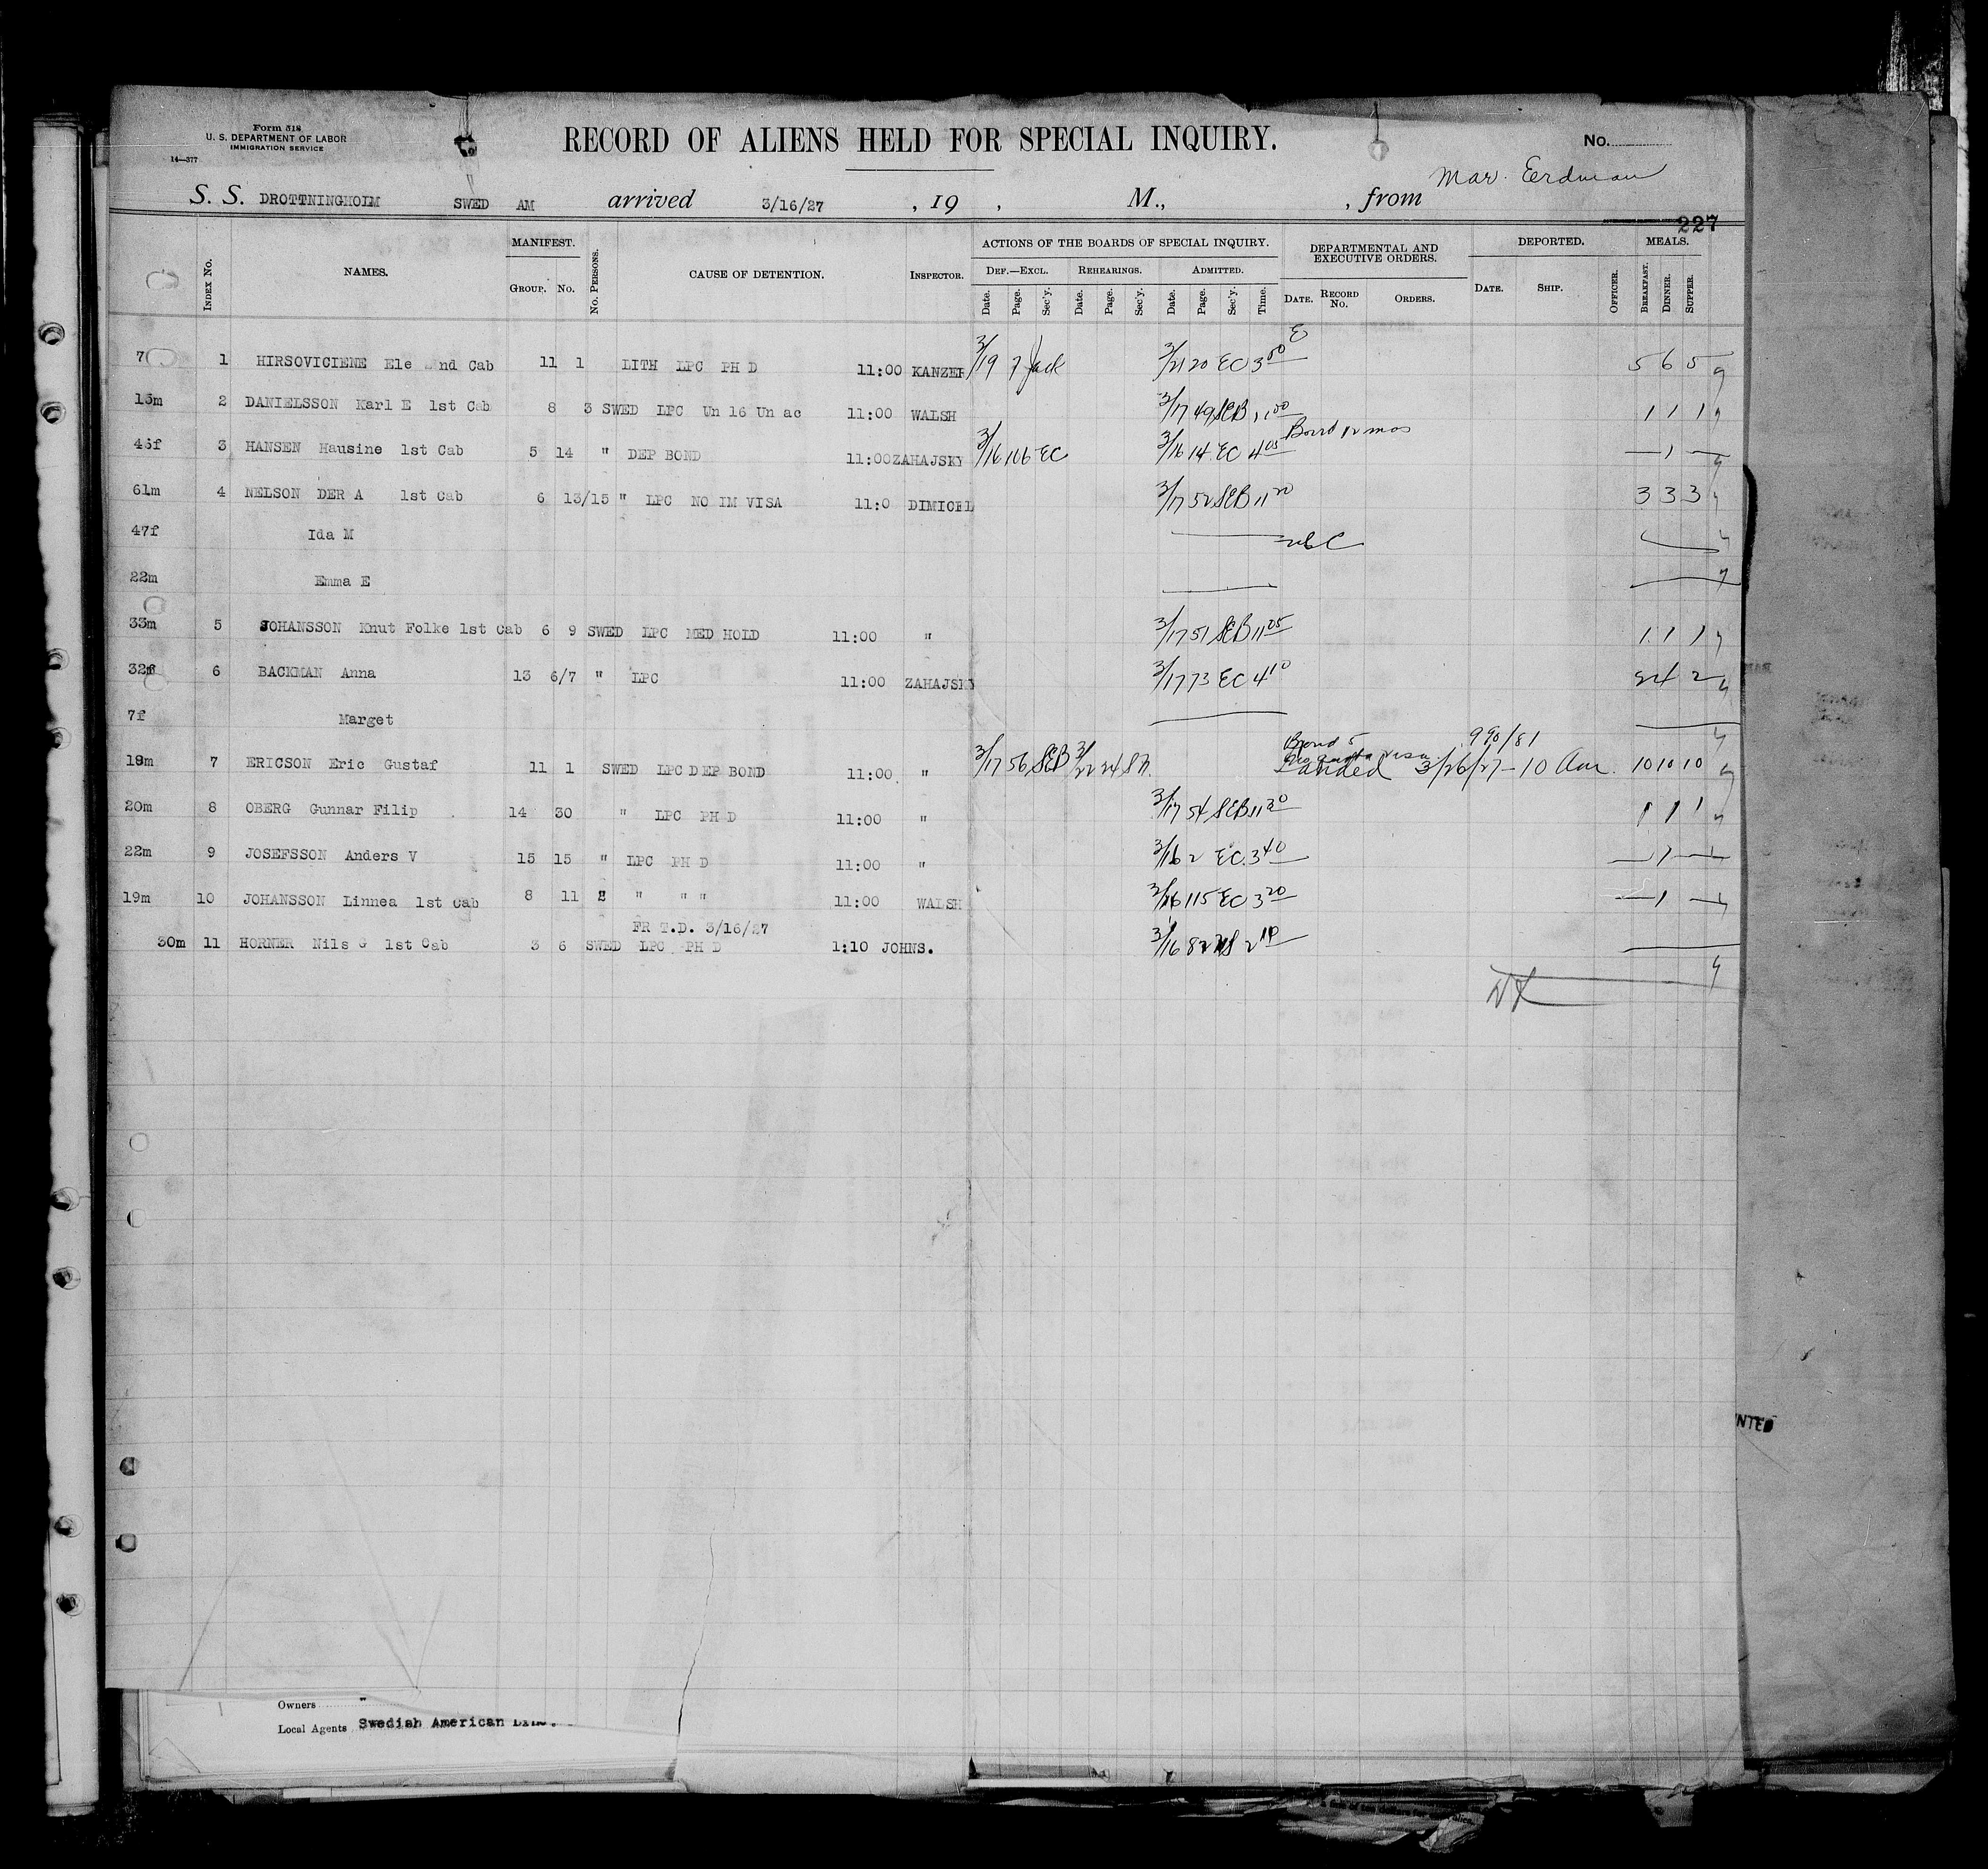 Form 518
U. S. DEPARTMENT OF LABOR
IMMIGRATION SERVICE
14—377
RECORD OF ALIENS HELD FOR SPECIAL INQUIRY.
No.
Mar. Eerdman
S. S. DROTTNINGHOLM SWED AM arrived 3/16/27 , 19 , M., , from
227
INDEX No. NAMES. MANIFEST. GROUP. No. No. PERSONS. CAUSE OF DETENTION. INSPECTOR. ACTIONS OF THE BOARDS OF SPECIAL INQUIRY. DEF.—EXCL. Date. Page. Sec'y. REHEARINGS. Date. Page. Sec'y. ADMITTED. Date. Page. Sec'y. Time. DEPARTMENTAL AND EXECUTIVE ORDERS. DATE. RECORD No. ORDERS. DEPORTED. DATE. SHIP. OFFICER. MEALS. BREAKFAST. DINNER. SUPPER.
1 HIRSOVICIENE Ele nd Cab 11 1 LITH LPC PH D 11:00 KANZER 3/19 7 Jack 3/21 20 EC 3 50 5 6 5
15m 2 DANIELSSON Karl E 1st Cab 8 3 SWED LPC Un 16 Un ac 11:00 WALSH 3/17 49 SEB 1 00 1 1 1
Bond 12 mos
46f 3 HANSEN Hausine 1st Cab 5 14 " DEP BOND 11:00 ZAHAJSKY 3/16 106 EC 3/16 14 EC 4 05 — 1 —
61m 4 NELSON DER A 1st Cab 6 13/15 " LPC NO IM VISA 11:0 DIMICEL 3/17 52 SEB 11 20 3 3 3
47f Ida M
22m Emma E
33m 5 JOHANSSON Knut Folke 1st Cab 6 9 SWED LPC MED HOLD 11:00 " 3/17 51 SEB 11 05 1 1 1
32f 6 BACKMAN Anna 13 6/7 " LPC 11:00 ZAHAJSKY 3/17 73 EC 4 10 4 2
7f Marget
Bond 990/81
19m 7 ERICSON Eric Gustaf 11 1 SWED LPC DEP BOND 11:00 " 3/17 56 SEB 3/22 24 Landed 3/26/27 - 10 Am. 10 10 10
20m 8 OBERG Gunnar Filip 14 30 " LPC PH D 11:00 " 3/17 54 SEB 11 20 1 1 1
22m 9 JOSEFSSON Anders V 15 15 " LPC PH D 11:00 " 3/16 2 EC 3 40 — 1 —
19m 10 JOHANSSON Linnea 1st Cab 8 11 " " " 11:00 WALSH 3/16 115 EC 3 20 — 1 —
FR T.D. 3/16/27
30m 11 HORNER Nils G 1st Cab 3 6 SWED LPC PH D 1:10 JOHNS. 3/16 82 2 10
NTED
Owners "
Local Agents Swedish American Line.